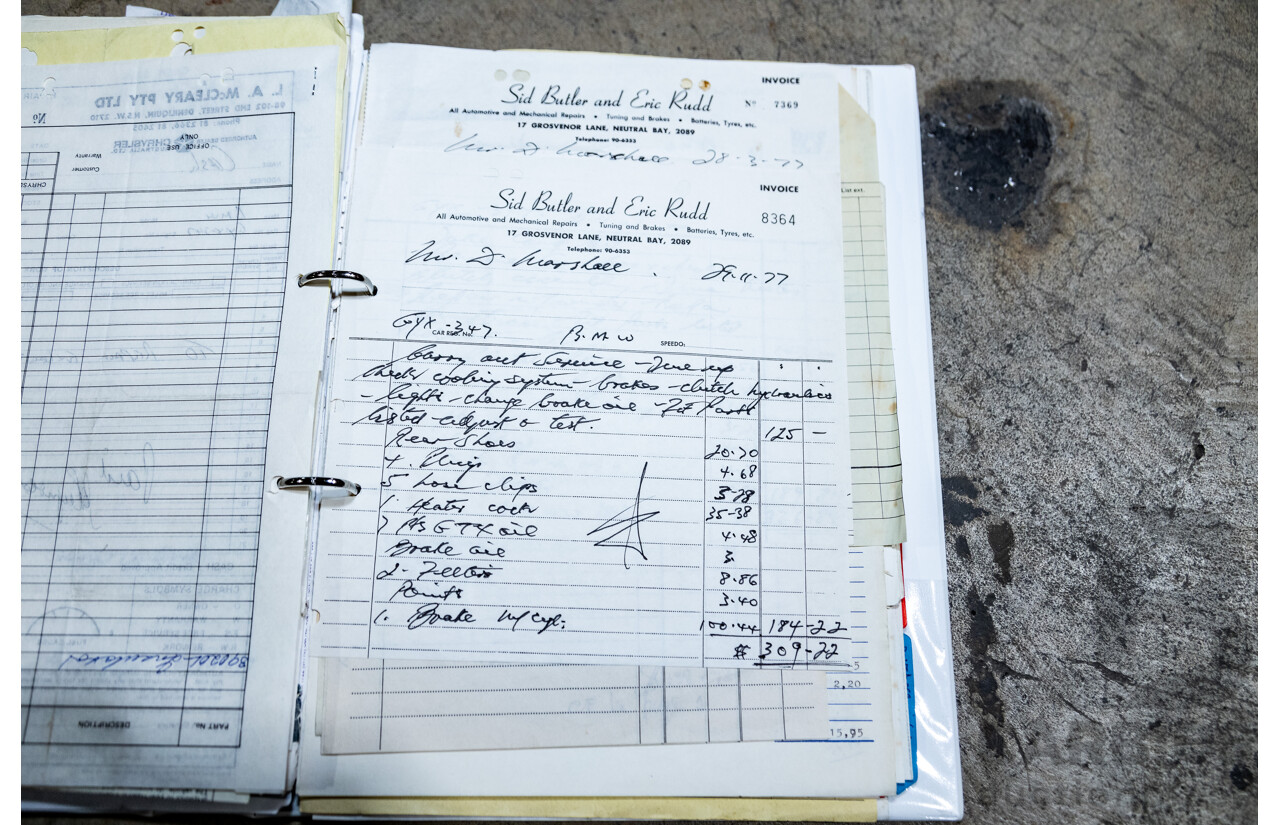 INVOICE
Sid Butler and Eric Rudd
Nº 7369
All Automotive and Mechanical Repairs • Tuning and Brakes • Batteries, Tyres, etc.
17 GROSVENOR LANE, NEUTRAL BAY, 2089
Telephone: 90-6353
Mr. D. Marshall 28-3-77
INVOICE
Sid Butler and Eric Rudd
8364
All Automotive and Mechanical Repairs • Tuning and Brakes • Batteries, Tyres, etc.
17 GROSVENOR LANE, NEUTRAL BAY, 2089
Telephone: 90-6353
Mr. D. Marshall. 29-11-77
GYX-347. B.M.W
CAR REG. No. SPEEDO:
Carry out Service - Tune up
Check cooling system - brakes - clutch hydraulics
- lights - change brake oil - Fit Parts
listed - adjust & test. 125 —
Rear Shoes 20.70
4. Plugs 4.68
5 hose clips 3-78
1. Heater cock 35-38
7 Pts GTX oil 4.48
Brake oil 3.
2- Filters 8.86
Points 3.40
1. Brake M/cyl; 100.44 184-22
$ 309-22
5
2,20
15,95
List ext.
L. A. McCLEARY PTY LTD
98-102 END STREET, DENILIQUIN, N.S.W. 2710
Nº
CHRYSLER
CASH
OFFICE USE
ONLY
Customer
Warranty
PART No.
DESCRIPTION